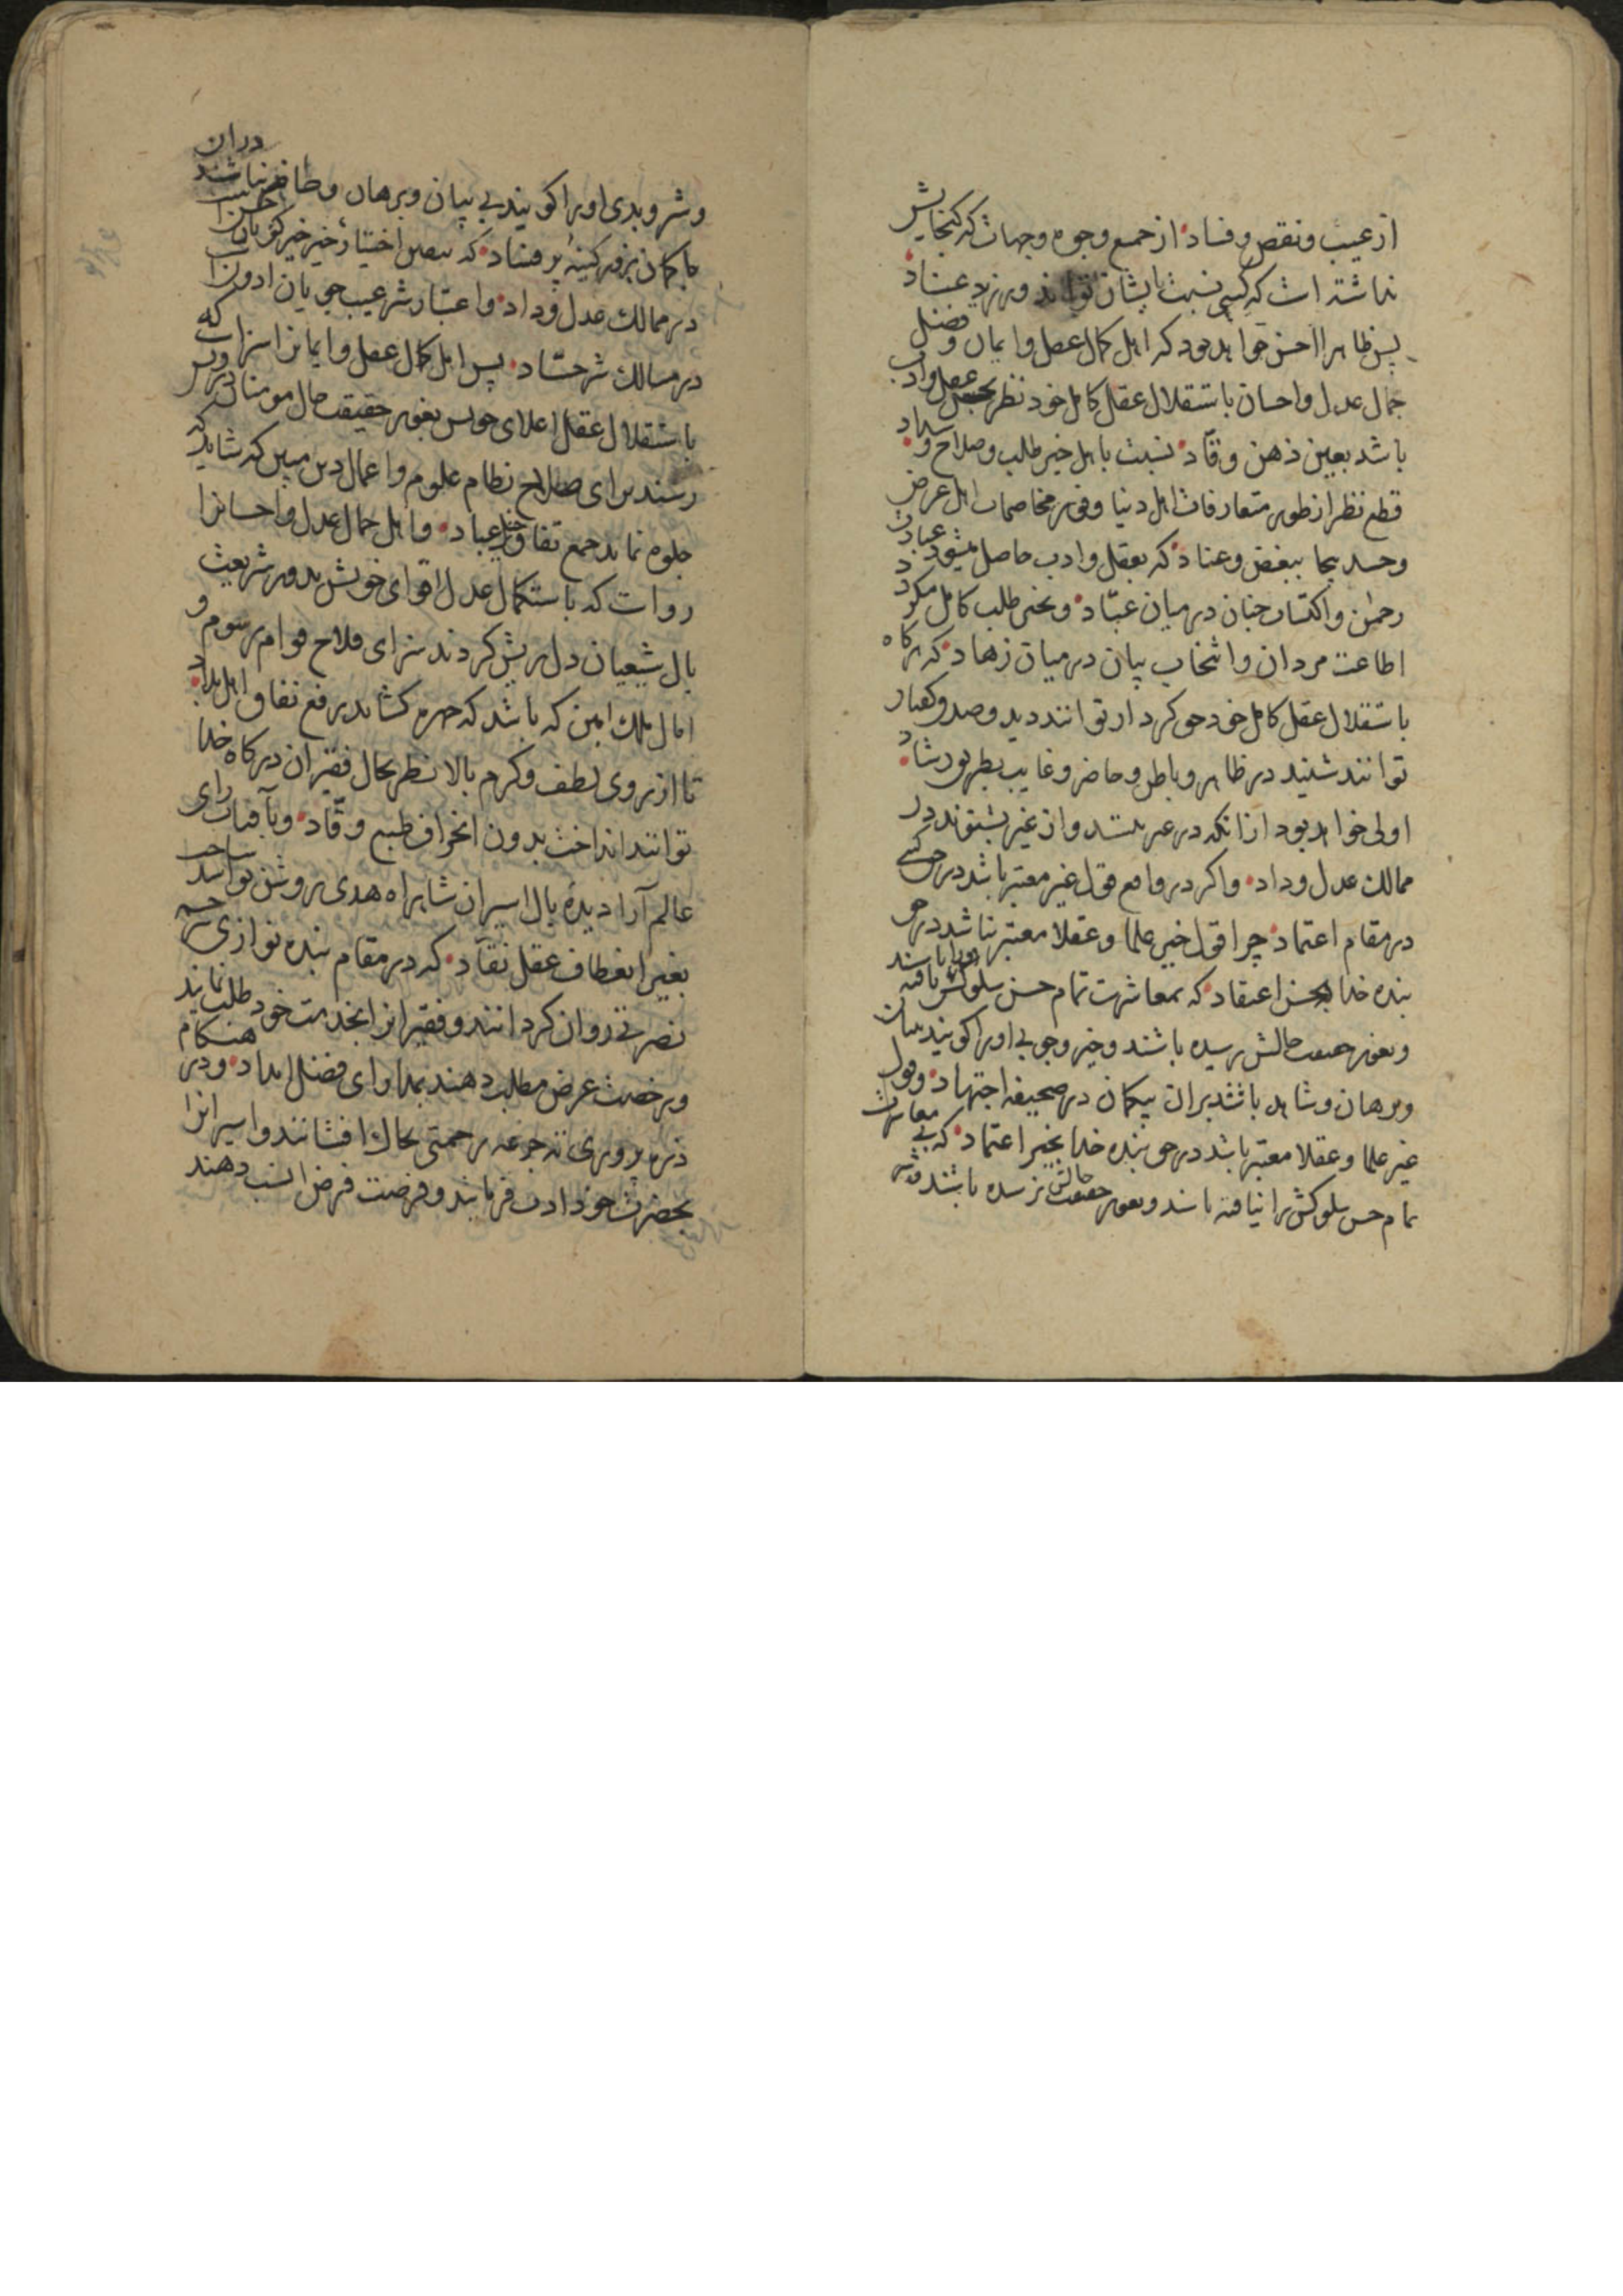 از عیب و نقص و فساد از جمیع وجوه و جهات که گنجایش
نداشته است که کسی نسبت بایشان تواند ورزید عناد
پس ظاهرا احسن خواهد بود که اهل کمال عقل و ایمان و فضل
جمال عدل و احسان باستقلال عقل کامل خود نظر بحیل عقل و ادب
باشد بعین ذهن وقّاد نسبت باهل خیر طلب و صلاح و سداد
قطع نظر از طور متعارفات اهل دنیا و فی مخاصمات اهل غرض
و حسد بیجا ببغض و عناد که بعقل و ادب حاصل میشود عبادت
رحمن و اکتساب جنان در میان عبّاد و بخیر طلب کامل میگردد
اطاعت مردان و انتخاب بیان در میان زهاد که هرگاه
باستقلال عقل کامل خود کردار توانند دید و صد گفتار
توانند شنید در ظاهر و باطن و حاضر و غایب بطریق رشاد
اولی خواهد بود از انکه در غیر بینند و از غیر بشنوند در
ممالک عدل و داد و اگر در واقع قول غیر معتبر باشد در حق کسی
در مقام اعتماد چرا قول خیر علما و عقلا معتبر نباشد در حق
بنده خدا بحسن اعتقاد که بمعاشرت تمام حسن سلوکش را یافته باشند
و بغور حقیقت حالش رسیده باشند و خیر و خوبی او را گویند ببیان
و برهان و شاهد باشند بران بیگمان در صحیفه اجتهاد و قول
غیر علما و عقلا معتبر باشد در حق بنده خدا بخیر اعتماد که بی معاشرت
تمام حسن سلوکش را نیافته باشند و بغور حقیقت حالش نرسیده باشند
و شر و بدی او را گویند بی بیان و برهان و ظاهر نباشند دران
در ممالک عدل و داد و اعتبار شر عیب جویان
در مسالک شر حسّاد پس اهل کمال عقل و ایمانرا سزاست که
باستقلال عقل اعلای خویش بغور حقیقت حال مومنان
رسند برای صلاح نظام علوم و اعمال دین مبین که شاید که
جلوه نماید جمع تفاوت عباد و اهل جمال عدل و احسانرا
رواست که باستکمال عدل اقوای خویش بدور شریعت
بال شیعیان دل ریش گردند برای فلاح قوام رسوم و
امال ملک امین که باشد که چهره گشاید رفع نفاق اهل بلاد
تا از روی لطف و کرم بالا نظر بحال فقیران درگاه خدا
توانند انداخت بدون انحراف طبع وقّاد و بآفتاب رای
عالم آرا دیدهٔ بال اسیران شاهراه هدی روشن توانند ساخت
بغیر انعطاف عقل نقّاد که در مقام بنده نوازی
نصرتی روان گردانند و فقیرانرا بخدمت خود طلب نمایند
و رخصت عرض مطلب دهند بمداوای فضل امداد و در هنگام
ذره پروری ته جرعه رحمتی بخاک افشانند و اسیرانرا
بحضرت خود اذن فرمایند و فرصت فرض انسب دهند